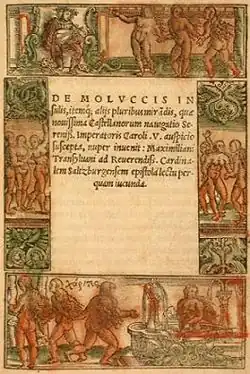 DE MOLVCCIS IN
sulis, itemq; alijs pluribus mirãdis, quæ
novissima Castellanorum navigatio Se-
reniss. Imperatoris Caroli. V. auspicio
suscepta, nuper invenit: Maximiliani
Transylvani ad Reverendiss. Cardina-
lem Saltzburgensem epistola lectu per-
quam iucunda.